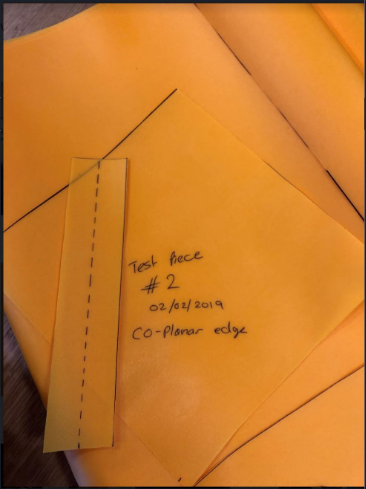 Test Piece
# 2
02/02/2019
CO-Planar edge